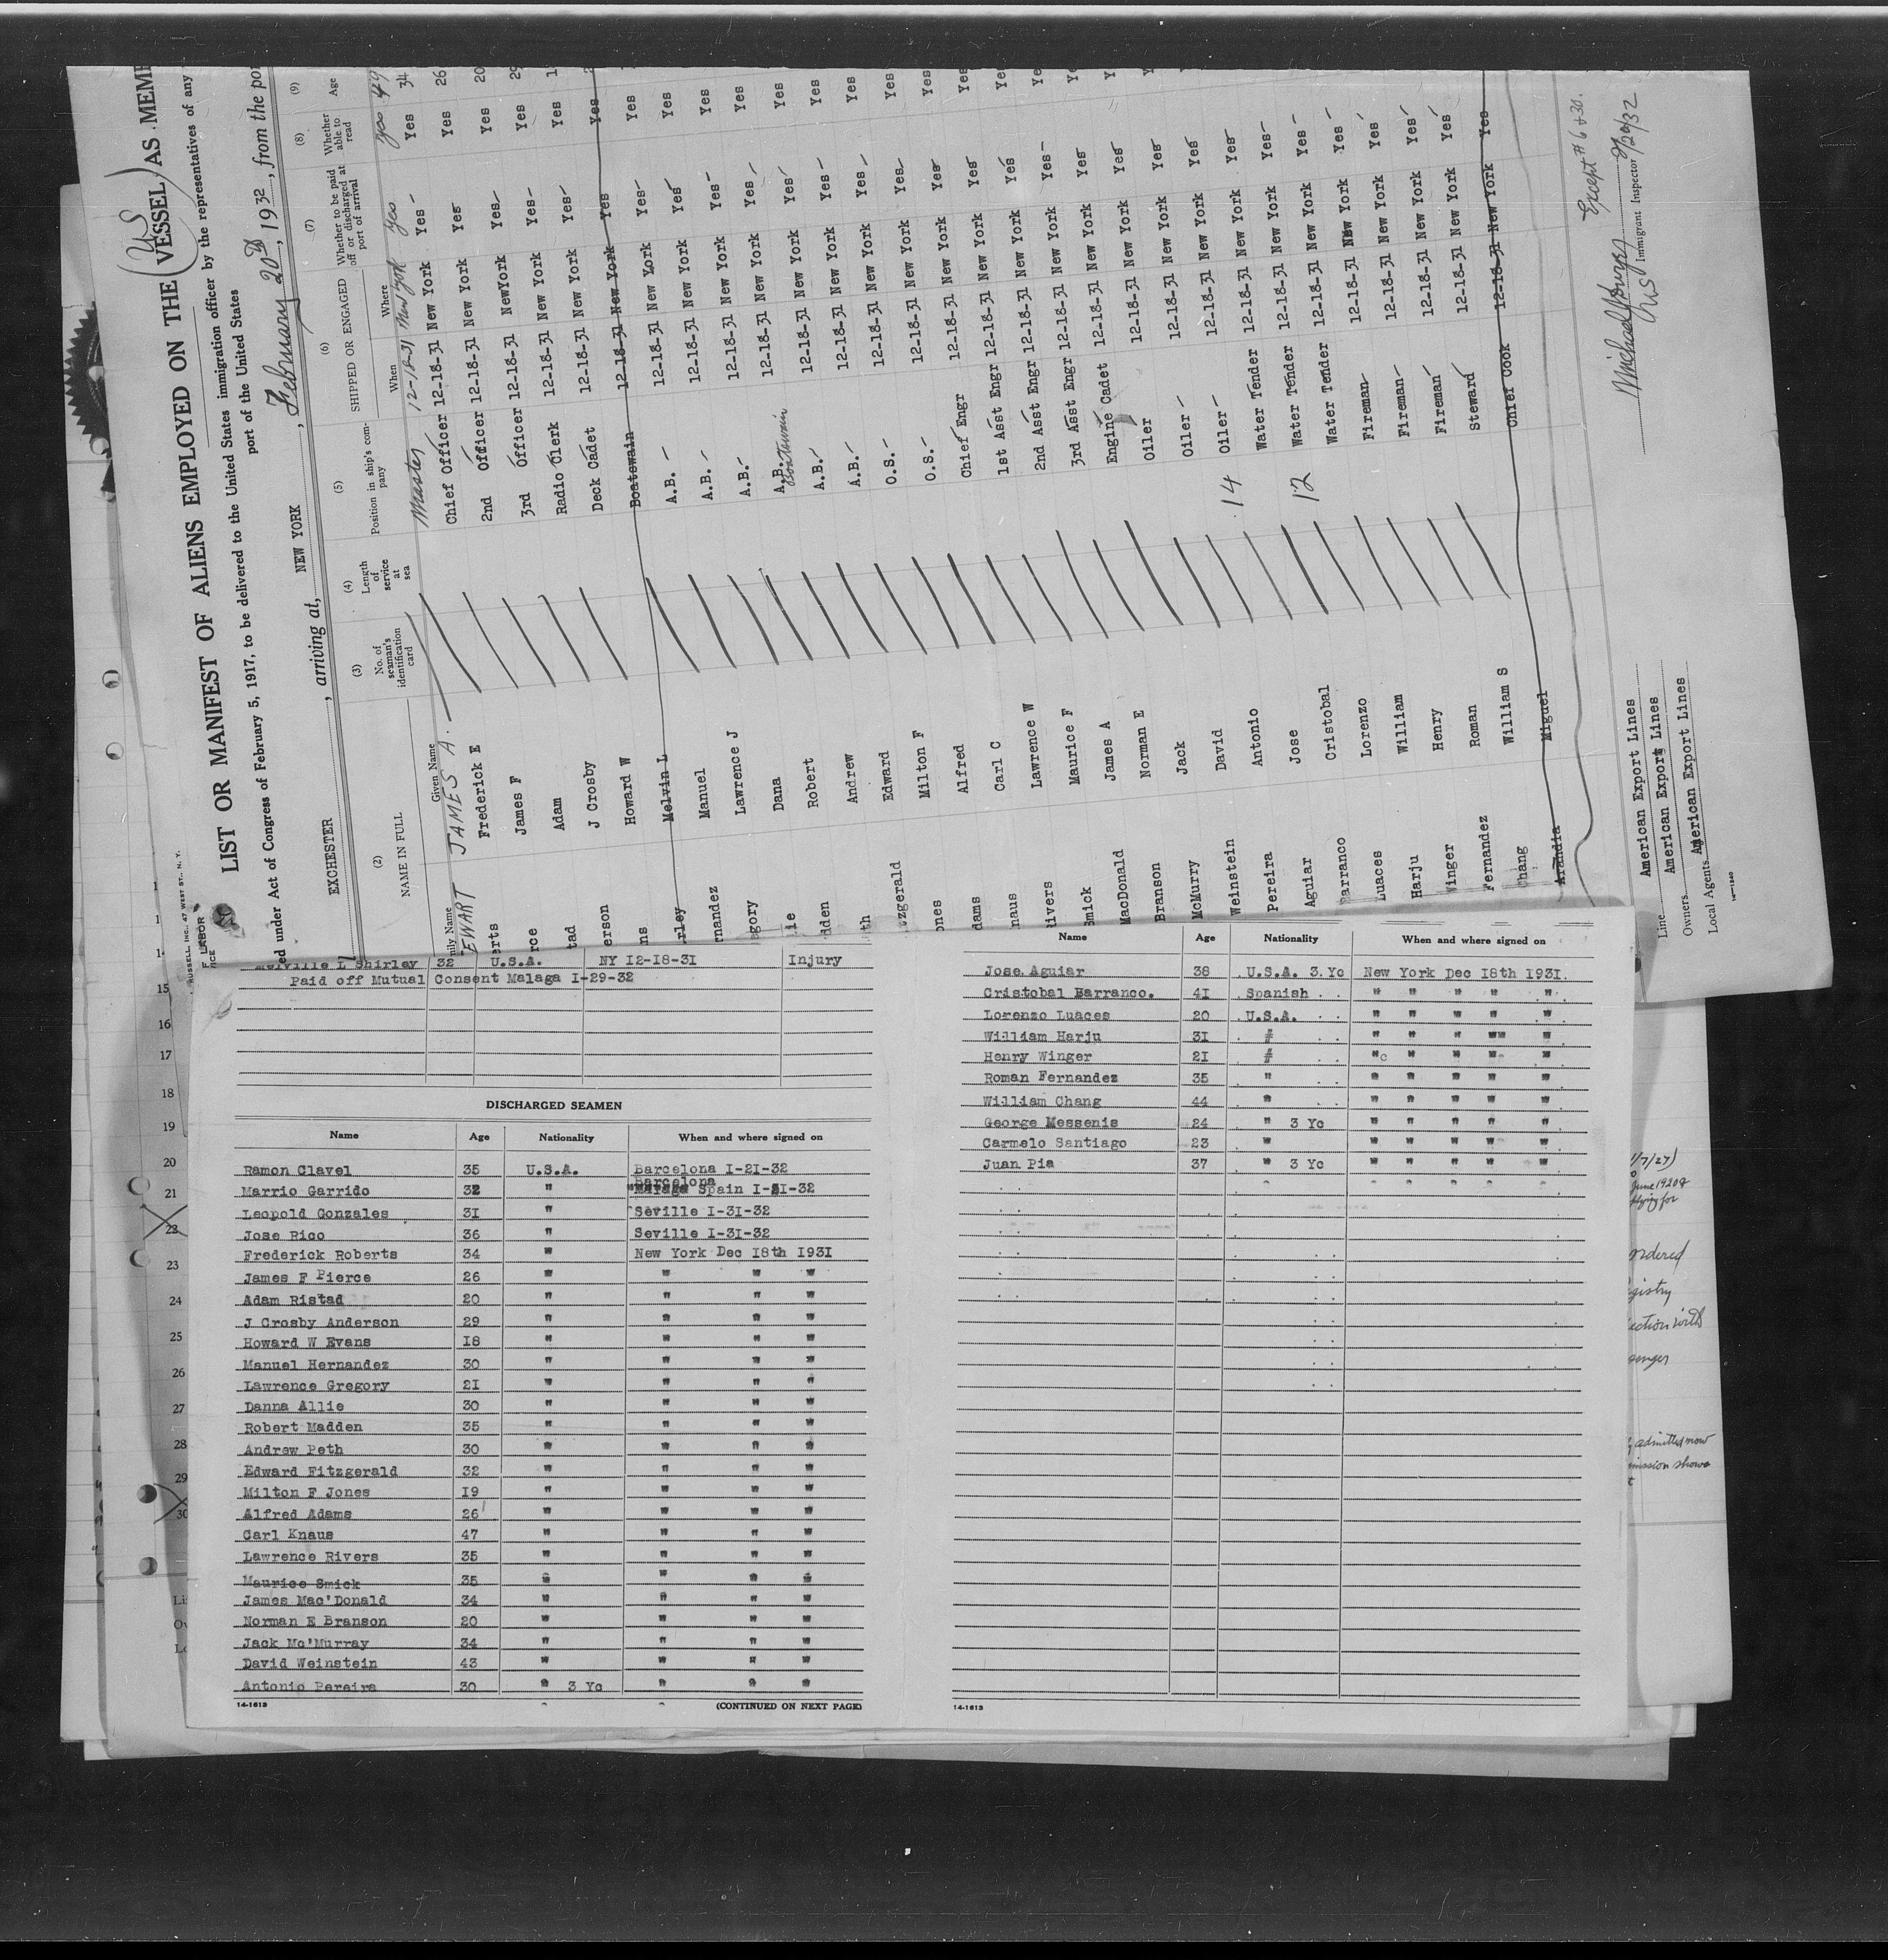 LIST OR MANIFEST OF ALIENS EMPLOYED ON THE VESSEL AS MEM
U.S
ed under Act of Congress of February 5, 1917, to be delivered to the United States immigration officer by the representatives of any
port of the United States
EXCHESTER, arriving at, NEW YORK, February 20th, 1932, from the po
(2) NAME IN FULL (3) No. of seaman's identification card (4) Length of service at sea (5) Position in ship's company (6) SHIPPED OR ENGAGED (7) Whether to be paid off or discharged at port of arrival (8) Whether able to read (9) Age
Given Name When Where
EWART JAMES A. Master 12-18-31 New York yes yes 49
erts Frederick E Chief Officer 12-18-31 New York Yes Yes 34
rce James F 2nd Officer 12-18-31 New York Yes Yes 26
tad Adam 3rd Officer 12-18-31 NewYork Yes Yes 20
erson J Crosby Radio Clerk 12-18-31 New York Yes Yes 29
ns Howard W Deck Cadet 12-18-31 New York Yes Yes
rley Melvin L Boatswain 12-18-31 New York Yes Yes
rnandez Manuel A.B. 12-18-31 New York Yes Yes
egory Lawrence J A.B. 12-18-31 New York Yes Yes
lie Dana A.B. 12-18-31 New York Yes Yes
dden Robert A.B. Boatswain 12-18-31 New York Yes Yes
th Andrew A.B. 12-18-31 New York Yes Yes
tzgerald Edward A.B. 12-18-31 New York Yes Yes
ones Milton F O.S. 12-18-31 New York Yes Yes
dams Alfred O.S. 12-18-31 New York Yes Yes
naus Carl C Chief Engr 12-18-31 New York Yes Yes
ivers Lawrence W 1st Asst Engr 12-18-31 New York Yes
Smick Maurice F 2nd Asst Engr 12-18-31 New York Yes
MacDonald James A 3rd Asst Engr 12-18-31 New York Yes
Branson Norman E Engine Cadet 12-18-31 New York Yes
McMurry Jack Oiler 12-18-31 New York Yes
Weinstein David Oiler 12-18-31 New York Yes
Pereira Antonio 14 Oiler 12-18-31 New York Yes
Aguiar Jose Water Tender 12-18-31 New York Yes
Barranco Cristobal 12 Water Tender 12-18-31 New York Yes
Luaces Lorenzo Water Tender 12-18-31 New York Yes
Harju William Fireman 12-18-31 New York Yes
Winger Henry Fireman 12-18-31 New York Yes
Fernandez Roman Fireman 12-18-31 New York Yes
Chang William S Steward 12-18-31 New York Yes
Arandia Miguel Chief Cook 12-18-31 New York Yes
Except #6 & 30.
US Immigrant Inspector 2/20/32
Line American Export Lines
Owners American Export Lines
Local Agents American Export Lines
RUSSELL, INC., 47 WEST ST., N. Y.
F LABOR
ICE
Melville L Shirley 32 U.S.A. NY 12-18-31 Injury
Paid off Mutual Consent Malaga I-29-32
DISCHARGED SEAMEN
Name Age Nationality When and where signed on
Ramon Clavel 35 U.S.A. Barcelona I-21-32
Barcelona
Marrio Garrido 32 " Malaga Spain I-21-32
Leopold Gonzales 31 " Seville I-31-32
Jose Rico 36 " Seville I-31-32
Frederick Roberts 34 " New York Dec 18th 1931
James F Pierce 26 " " " "
Adam Ristad 20 " " " "
J Crosby Anderson 29 " " " "
Howard W Evans 18 " " " "
Manuel Hernandez 30 " " " "
Lawrence Gregory 21 " " " "
Danna Allie 30 " " " "
Robert Madden 35 " " " "
Andrew Peth 30 " " " "
Edward Fitzgerald 32 " " " "
Milton F Jones 19 " " " "
Alfred Adams 26 " " " "
Carl Knaus 47 " " " "
Lawrence Rivers 35 " " " "
Maurice Smick 35 " " " "
James Mac'Donald 34 " " " "
Norman E Branson 20 " " " "
Jack Mc'Murray 34 " " " "
David Weinstein 43 " " " "
Antonio Pereira 30 " 3 Yc " " "
14-1613 (CONTINUED ON NEXT PAGE)
Name Age Nationality When and where signed on
Jose Aguiar 38 U.S.A. 3 Yc New York Dec 18th 1931.
Cristobal Barranco. 41 Spanish " " " " "
Lorenzo Luaces 20 U.S.A. " " " " "
William Harju 31 # " " " " "
Henry Winger 21 # " " " " "
Roman Fernandez 35 " " " " " "
William Chang 44 " " " " " "
George Messenis 24 " 3 Yc " " " " "
Carmelo Santiago 23 " " " " " "
Juan Pia 37 " 3 Yc " " " " "
14-1613
15
16
17
18
19
20
21
22
23
24
25
26
27
28
29
30
1/7/27)
June 1920 &
ndered
gistry
ection with
enger
admitted now
mission shows